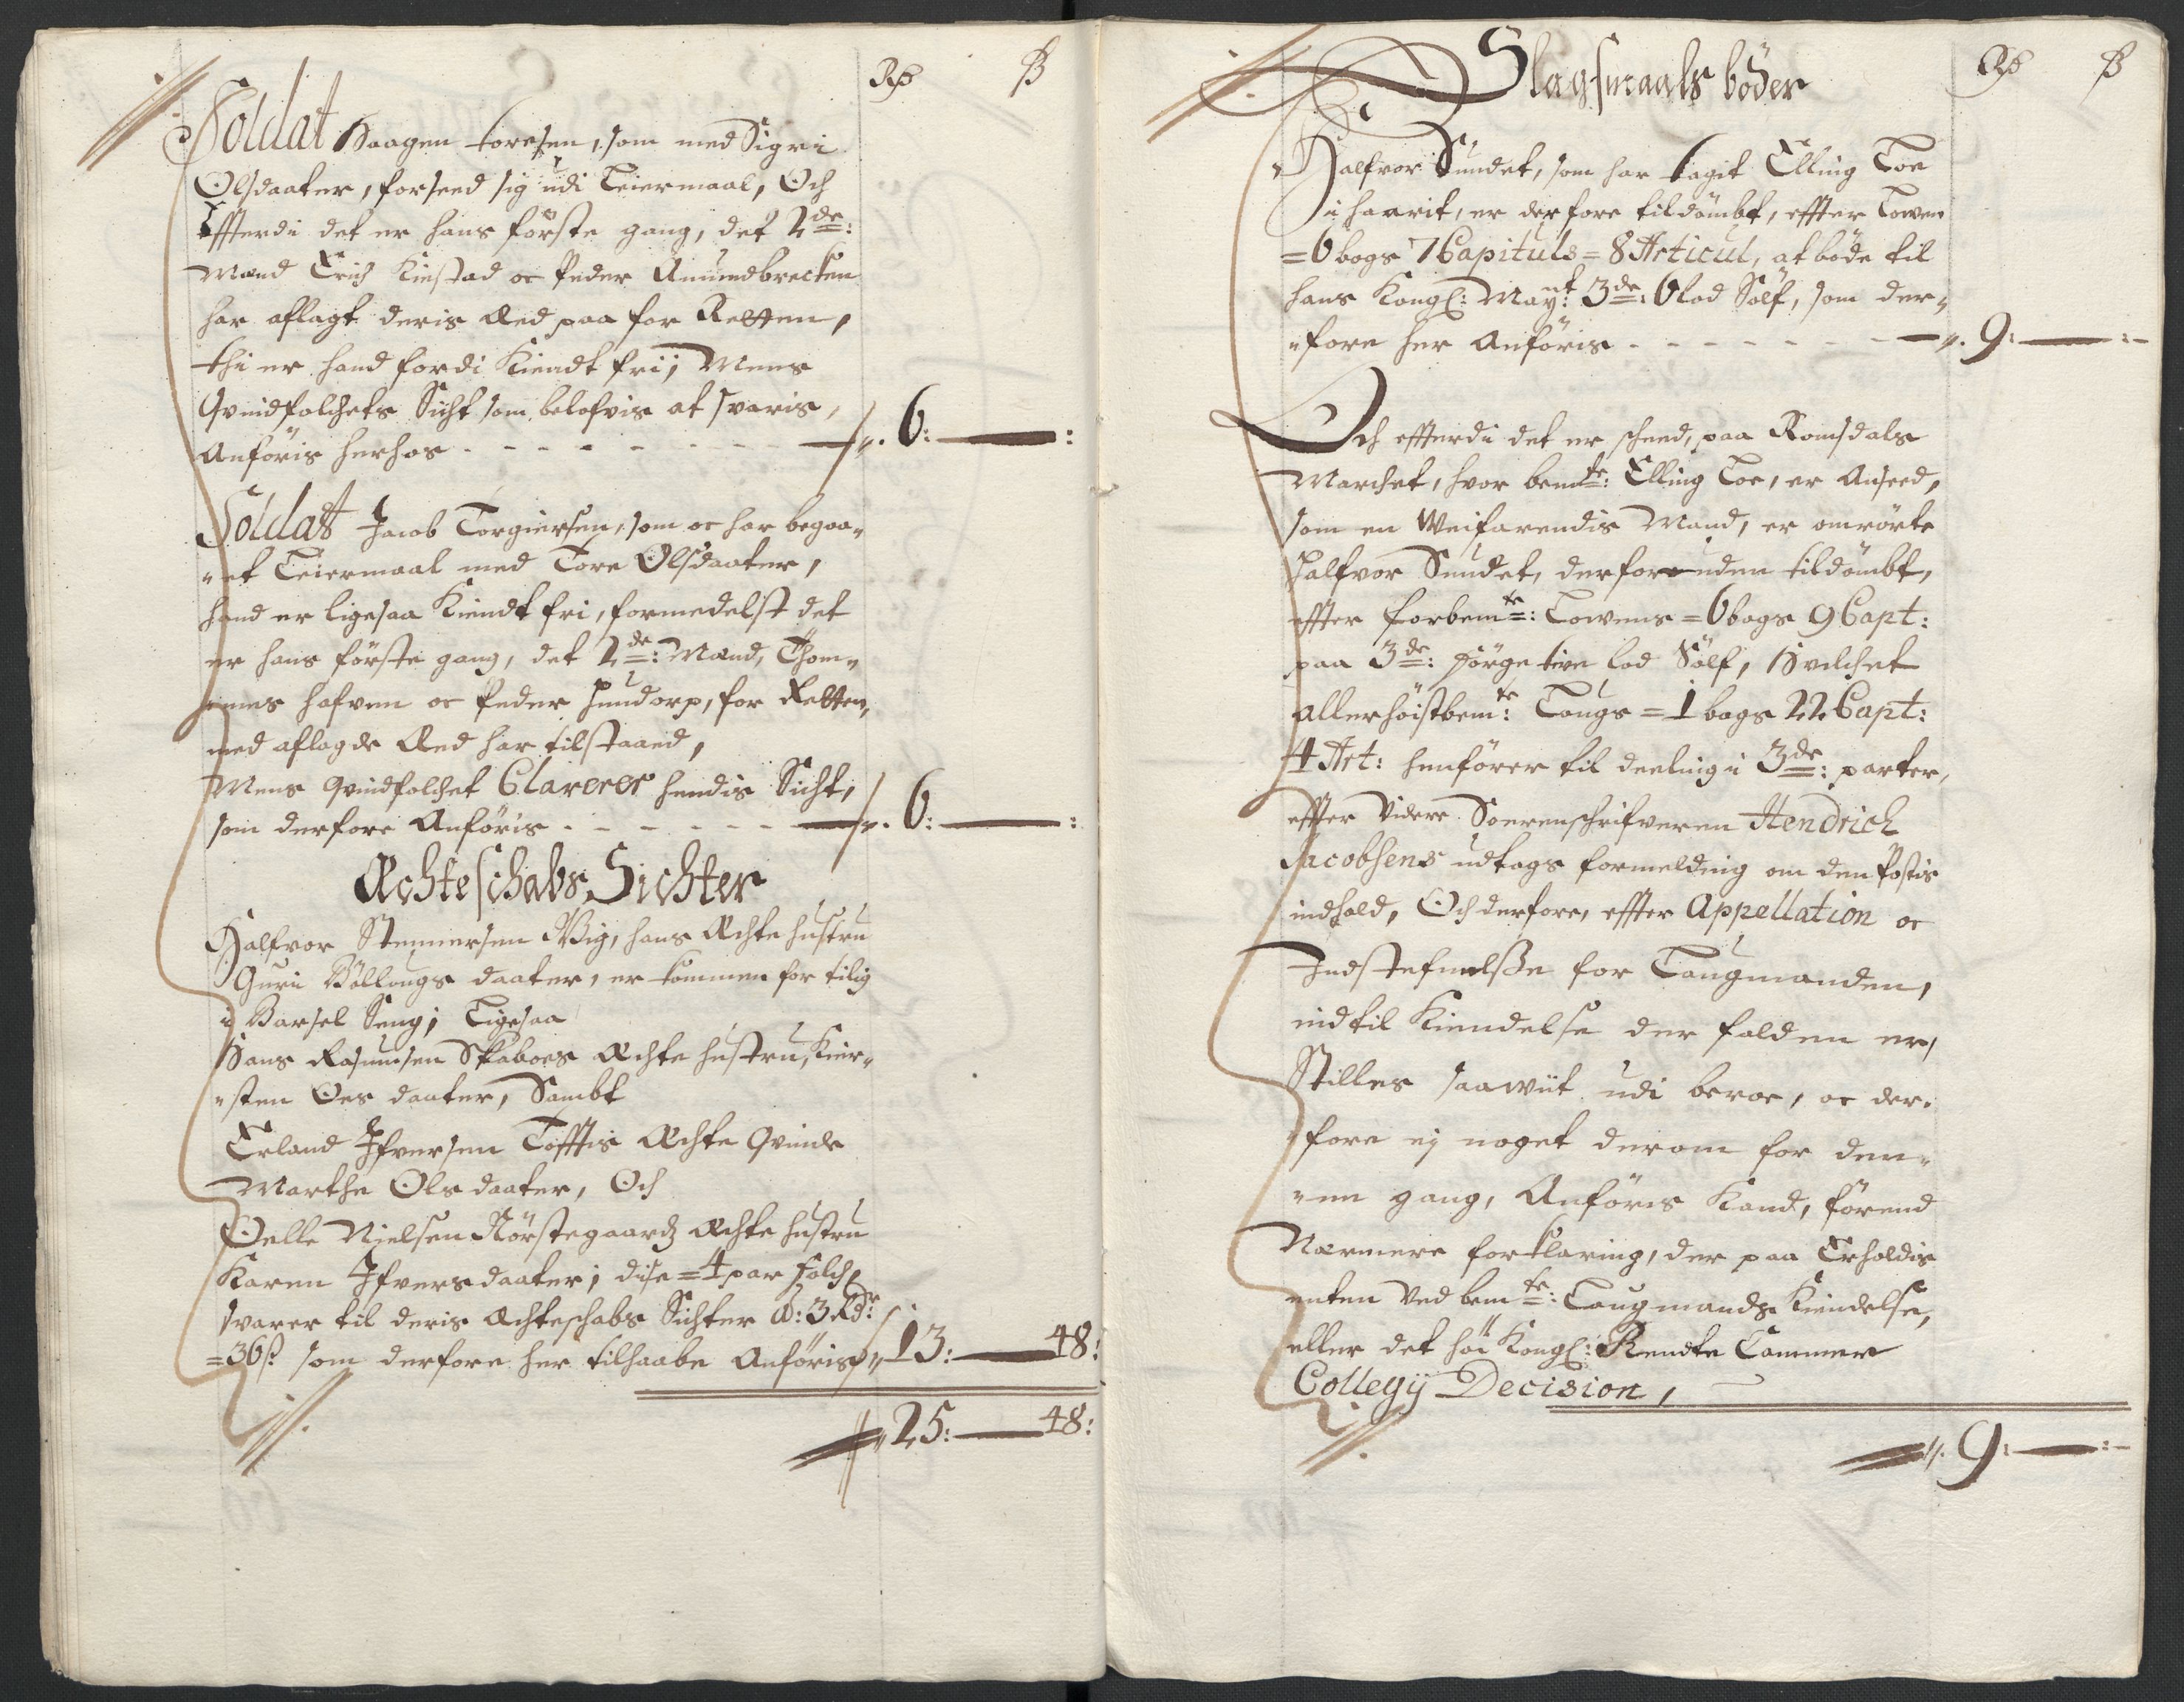 Rd ß
Soldat Haagen Toresen, som med Sigri
Olsdaater, forseed sig udi Leiermaal, Och
Effterdi det er hans förste gang, det 2de:
Mænd Erich Kiestad oc Peder Amundbrecken
har aflagt deris Æed paa for Retten,
thi er hand fordi Kiendt frii, Mens
Qvindfolchets Sicht som belofvis at svaris,
Anföris herhos - - - - - - - 6: —:
Soldat Jacob Torgiersen, som oc har begaa„
„et Leiermaal med Tore Olsdaater,
hand er ligesaa Kiendt fri, formedelst det
er hans förste gang, det 2de: Mænd, Thom„
„mes hafven oc Peder Hundorp, for Retten,
med aflagde Æed har tilstaaed,
Mens Qvindfolchet Clarerer hendis Sicht,
som derfore Anföris - - - - - - 6: —:
Æchteschabs Sichter
Halfvor Stennersen Wig, hans Æchte hustru
Guri Böllougs daater, er kommen for tilig
i Barsel Seng; Ligesaa
Hans Rasmusen Skaboes Æchte hustru, Kier„
„sten Oes daater, Sambt
Erland Ifversen Tofftis Æchte Qvinde
Marthe Ols daater, Och
Oelle Nielsen Nörstegaards Æchte hustru
Karen Ifversdaater; dise =4 par Folch,
svarer til deris Æchteschabs Sichter a: 3 Rdr:
=36ß som derfore her tilhaabe Anföris 13: — 48:
25: — 48:
Slagsmaals böder
Rd ß
Halfvor Sundet, som har tagit Elling Loe
i haarit, er derfore tildömbt, effter Lowen
=6 bogs 7 Capituls = 8 Articul, at böde til
hans Kongl: Mayt: 3de: 6 lod Sölf, som der„
„fore her Anföris - - - - - - - 9: —:
Och effterdi det er scheed, paa Romsdals
Marchet, hvor bemte: Elling Loe, er Anseed,
som en Weifarendis Mand, er omrörte
Halfvor Sundet, derforuden tildömbt,
effter forbemte: Lowens =6 bogs 9 Capt:
paa 3de: sörgetive lod Sölf, Hvilchet
allerhöistbemte: Laugs = 1 bogs 22 Capt:
4 Art: henförer til deeling i 3de: parter,
effter Videre Soerenschrifveren Hendrich
Jacobsens udtogs formelding om den Postis
indhold, Och derfore, effter Appellation oc
Indstefnelße for Laugmanden,
indtil Kiendelse der falden er,
Stilles saawiit udi beroe, oc der„
„fore ej noget derom for den„
„ne gang, Anföris Kand, förend
Nærmere forklaring, der paa Erholdis
enten Ved bemte: Laugmands Kiendelse,
eller det höi Kongl: Rendte Cammer
Collegij Decision,
9: —: